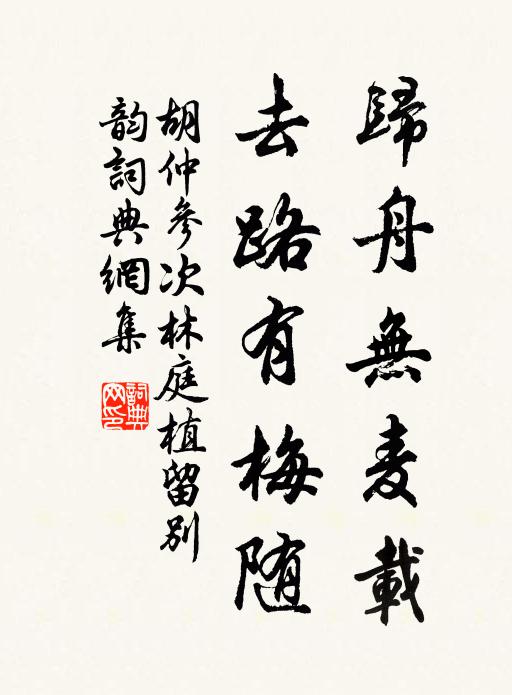 歸舟無麦載
去路有梅随
胡仲參次林庭植留别
韵詞典網集
詞典網印